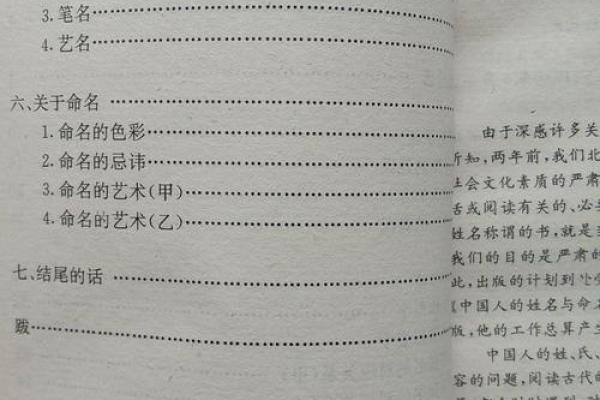 3.笔名
4.艺名
六、关于命名
1.命名的色彩
2.命名的忌讳
3.命名的艺术(甲)
4.命名的艺术(乙)
七、结尾的话
跋
由于深感许多关
所知,两年前,我们北
社会文化素质的严肃
活或阅读有关的、必
姓名称谓的书,就是
我们的目的是严肃的
此,出版的计划到
《中国人的姓名与命名
版,他的工作总算产生
中国人的姓、氏、
容的问题,阅读古代的